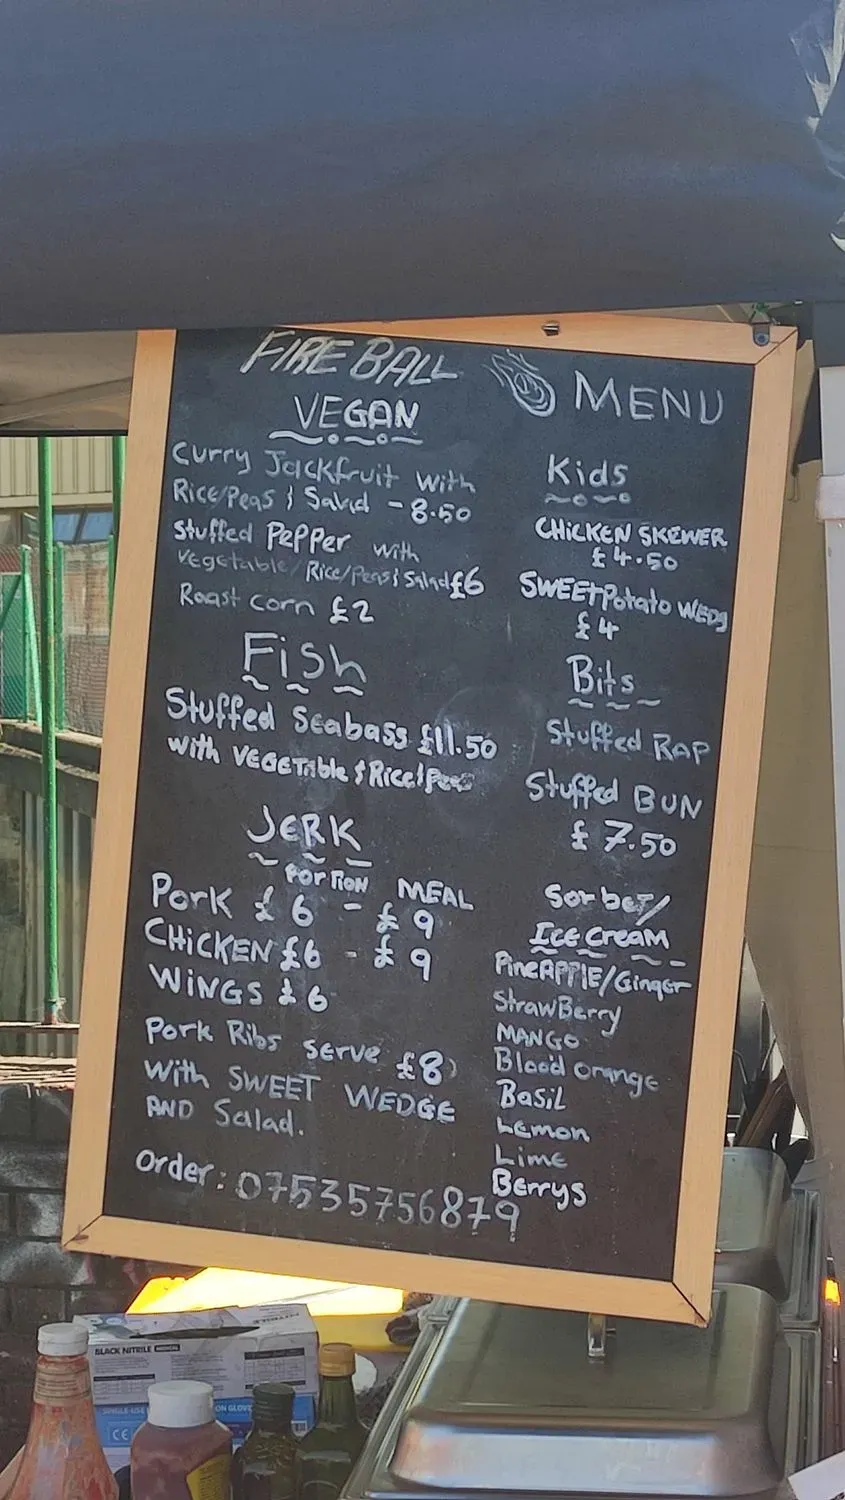 FIRE BALL MENU
VEGAN
Curry Jackfruit with
Rice/Peas & Salad - 8.50
Stuffed Pepper with
Vegetable/Rice/Peas & Salad £6
Roast corn £2
Fish
Stuffed Seabass £11.50
with VEGETable & Rice/Peas
JERK
PORTION MEAL
Pork £6 - £9
CHICKEN £6 - £9
WINGS £6
Pork Ribs serve £8
With SWEET WEDGE
AND Salad.
Order: 07535756879
Kids
CHICKEN SKEWER
£4.50
SWEETPotato WEDG
£4
Bits
Stuffed RAP
Stuffed BUN
£7.50
Sorbet/
Ice Cream
PineAPPlE/Ginger
StrawBerry
MANGO
Blood orange
Basil
Lemon
Lime
Berrys
BLACK NITRILE MEDICAL
CE